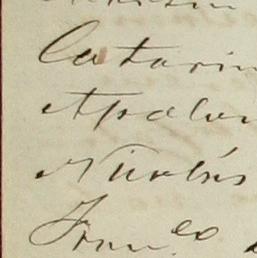 Catarin
Apolon
Nicolás
Fran.co